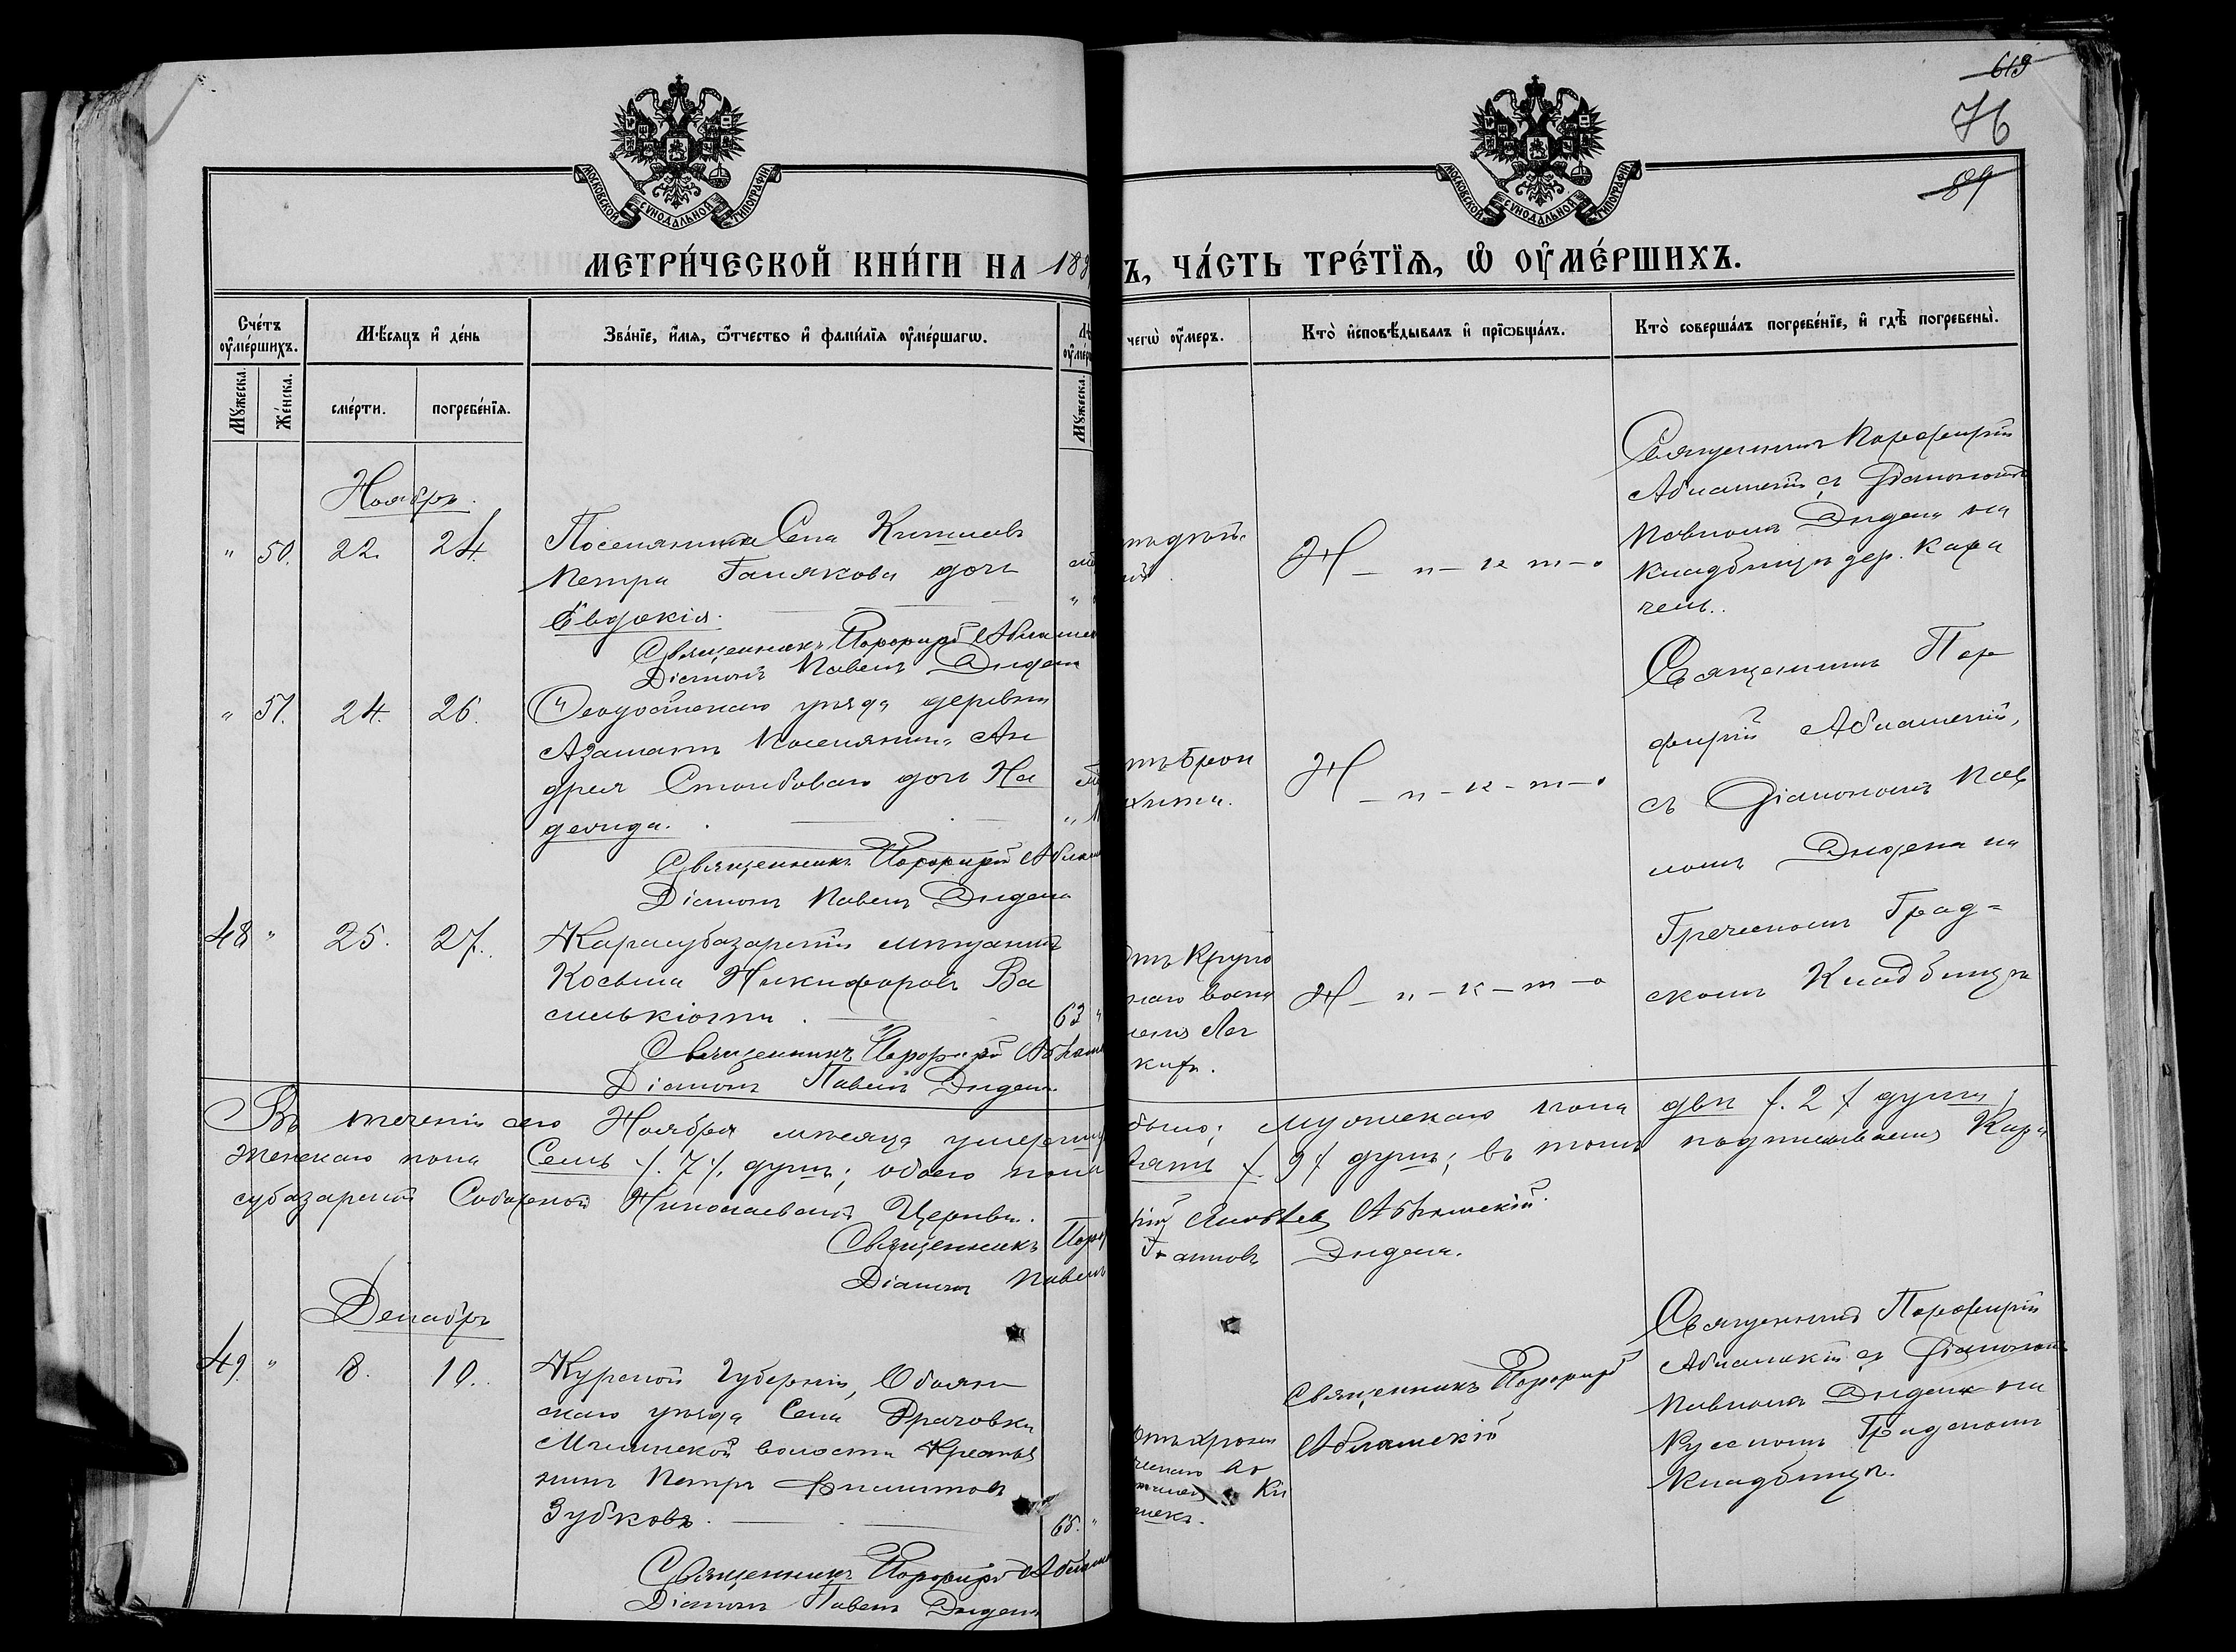 619
76
89
МОСКОВСКОЙ СУНОДАЛЬНОЙ ТИПОГРАФІИ
МОСКОВСКОЙ СУНОДАЛЬНОЙ ТИПОГРАФІИ
МЕТРИ́ЧЕСКОЙ КНИ́ГИ НА 188
Ъ, ЧА́СТЬ ТРЕ́ТІѦ, Ѡ҆ ОУ҆МЕ́РШИХЪ.
Сче́тъ оу҆ме́ршихъ.
Мꙋ́жеска.
Же́нска.
Мѣ́сяцъ и҆ де́нь
сме́рти.
погребе́нїѧ.
Зва́нїе, и҆́мѧ, ѻ҆́тчество и҆ фами́лїѧ оу҆ме́ршагѡ.
Мꙋ́жеска.
чегѡ̀ оу҆́меръ.
Кто̀ и҆сповѣ́дывалъ и҆ прїѡбща́лъ.
Кто̀ соверша́лъ погребе́нїе, и҆ гдѣ̀ погребены̀.
Ноябрь.
" 50. 22. 24.
Поселянина Села
Петра Галякова дочь
Евдокія.
Священникъ Порфирій Аблашев
Діаконъ Павелъ Дидена
Н – и – к – т – о
Священникъ Порфирій
Аблашескій съ Діакономъ
Павломъ Дидена на
кладбищѣ дер. Кара
чель.
" 51. 24. 26.
Ѳеодосійскаго уѣзда деревни
Азаматъ поселянина Ан
дрея Столбоваго дочь На
дежда.
Священникъ Порфирій Аблаш
Діаконъ Павелъ Дидена
тъ брон
хита.
Н – и – к – т – о
Священникъ Пор
фирій Аблашескій,
съ Діакономъ Пав
ломъ Дидена на
Греческомъ Град=
скомъ Кладбищѣ
48 " 25. 27.
Карасубазарскій мѣщанинъ
Косьма Никифоровъ Ва
силькіоти. 63 "
Священникъ Порфирій Аблаш
Діаконъ Павелъ Дидена
отъ Крупо
знаго воспа
ленія Лег
кихъ.
Н – и – к – т – о
Въ теченіи сего Ноября мѣсяца умерши
было; мужескаго пола двѣ /. 2 / души;
женскаго пола Семь /. 7 /. душъ; обоего пола
вять /. 9 / душъ; въ томъ подписываемся Кара
субазарской Соборной Николаевской Церкви.
Священникъ Порф
рій Яковлевъ Аблашескій.
Діаконъ Павелъ
Іоанновъ Дидена.
Декабрь
49. " 8. 10.
Курской Губерніи, Обоян
скаго уѣзда Села
волости Крестья
нинъ Петръ Филиповъ
Зубковъ. 65. "
Священникъ Порфирій Аблаш
Діаконъ Павелъ Дидена
отъ хрони
ческаго
Ки
шекъ.
Священникъ Порфирій
Аблашескій
Священникъ Порфирій
Аблашескій съ Діакономъ
Павломъ Дидена на
Русскомъ Градскомъ
Кладбищѣ.